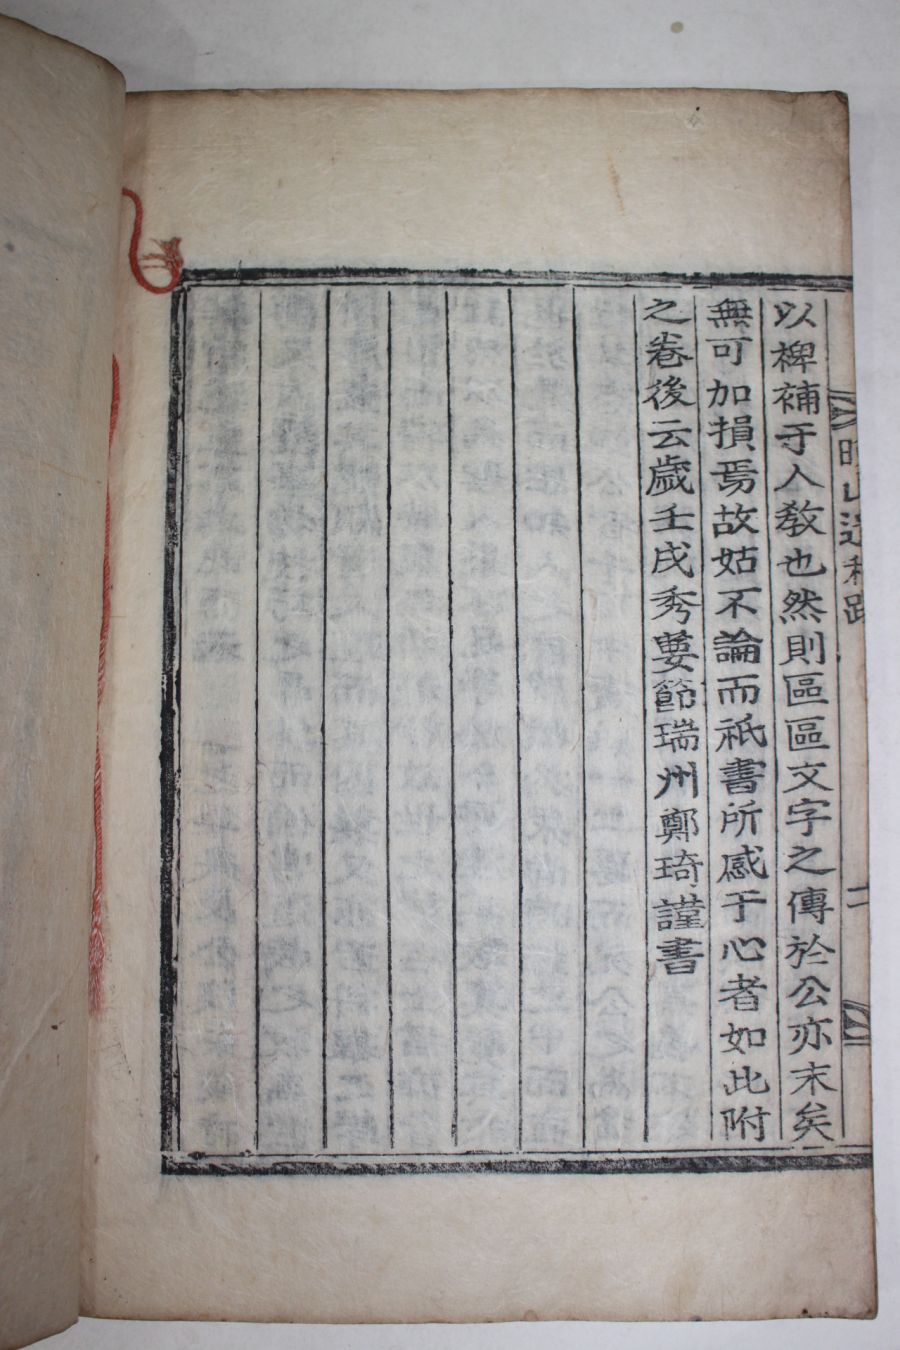 以裨補于人教也然則區區文字之傳於公亦末矣
無可加損焉故姑不論而祇書所感于心者如此附
之卷後云歲壬戌秀葽節瑞州鄭琦謹書
晩山遺稿跋
二